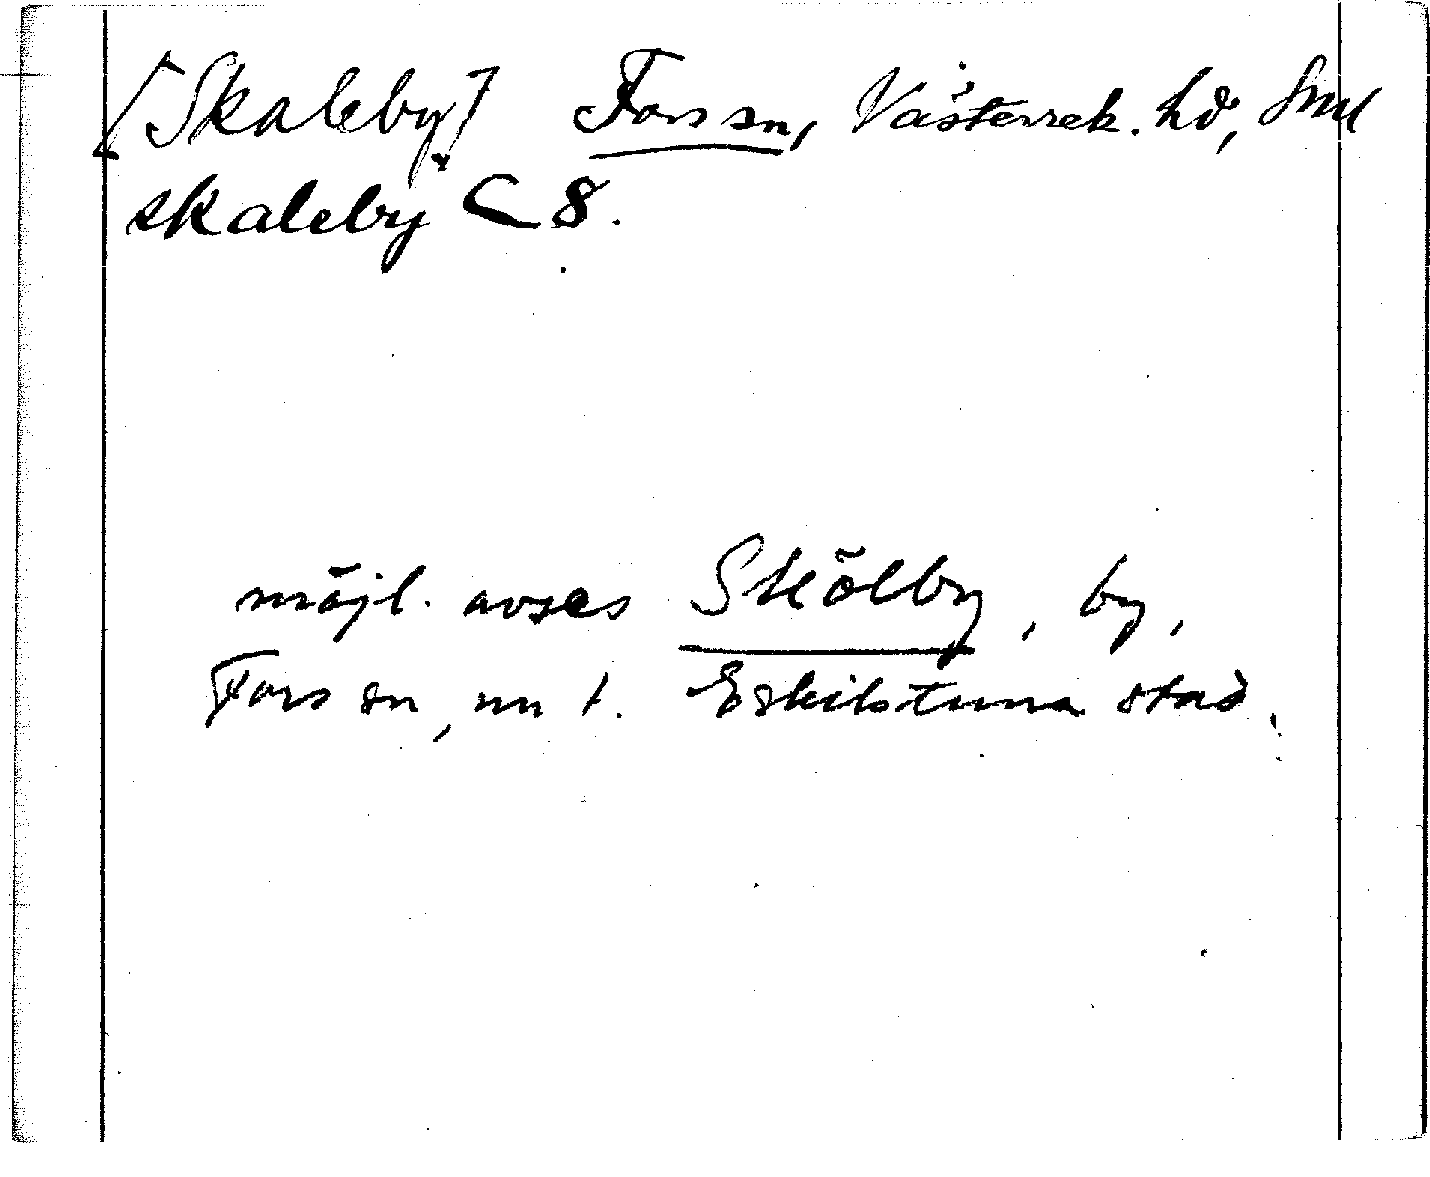 [Skaleby] Fors sn, Västerrek. hd, Sml
skaleby C 8.
möjl. avses Skölby, by,
Fors sn, nu t. Eskilstuna stad.